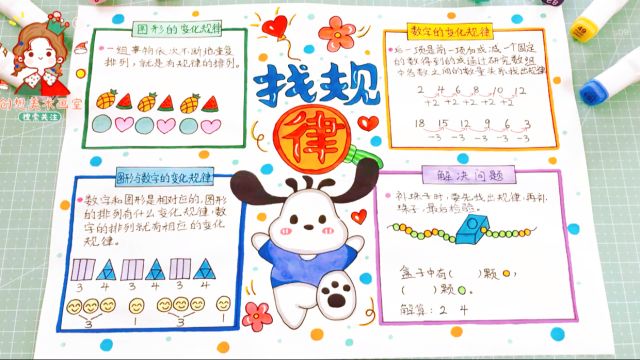 图形的变化规律
一组事物依次不断地重复
排列，就是有规律的排列。
找规
律
数字的变化规律
后一项是前一项加或减一个固定
的数得到的或通过研究数组
中各数之间的数量关系找出规律
2 4 6 8 10 12
+2 +2 +2 +2 +2
18 15 12 9 6 3
-3 -3 -3 -3 -3
图形与数字的变化规律
数字和图形是相对应的，图形
的排列有什么变化规律，数
字的排列就有相应的变化
规律。
3 4 3 4 3 4
3 1 3 1
解决问题
补珠子时，要先找出规律，再补
珠子，最后检验。
盒子中有( )颗，
( )颗。
解答：2 4
搜索关注